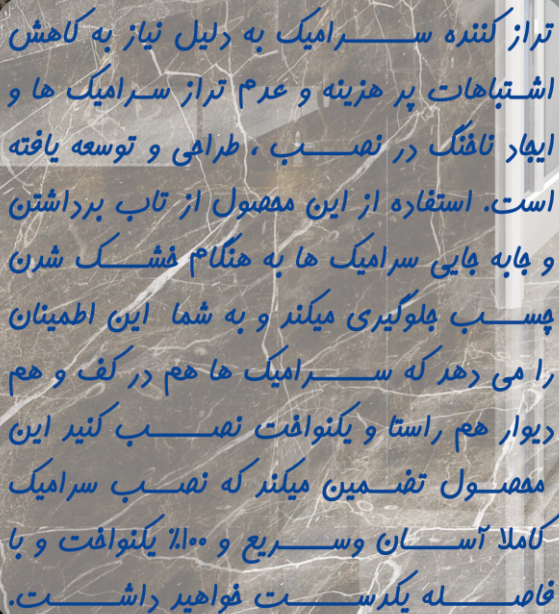 تراز کننده سرامیک به دلیل نیاز به کاهش
اشتباهات پر هزینه و عدم تراز سرامیک ها و
ایجاد ناخنگ در نصب ، طراحی و توسعه یافته
است. استفاده از این محصول از تاب برداشتن
و جابه جایی سرامیک ها به هنگام خشک شدن
چسب جلوگیری میکند و به شما این اطمینان
را می دهد که سرامیک ها هم در کف و هم
دیوار هم راستا و یکنواخت نصب کنید این
محصول تضمین میکند که نصب سرامیک
کاملا آسان وسریع و ۱۰۰٪ یکنواخت و با
فاصله یکرست خواهید داشت.